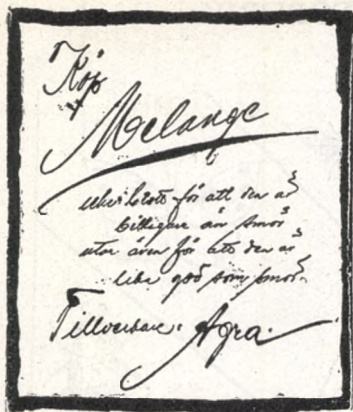 Köp
Melange
icke blott för att den är
billigare än smör
utan även för att den är
lika god som smör.
Tillverkare: Agra.